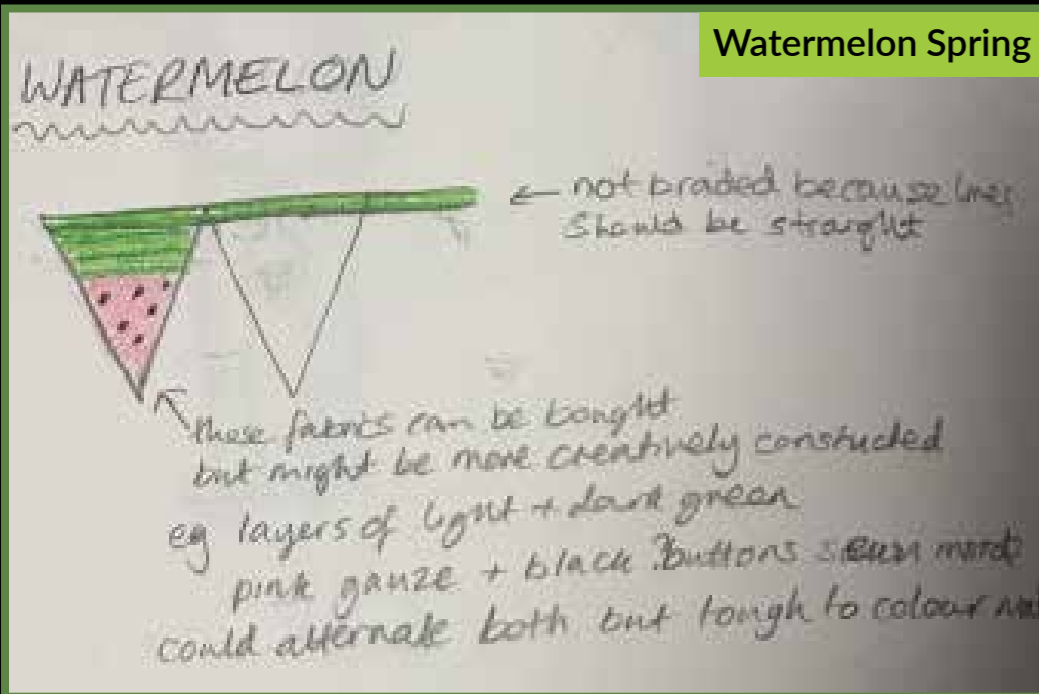 Watermelon Spring
WATERMELON
← not braded because lines
should be straight
these fabrics can be bought
but might be more creatively constucted
eg layers of light + dark green
pink gauze + black ?buttons
could alternate both but tough to colour